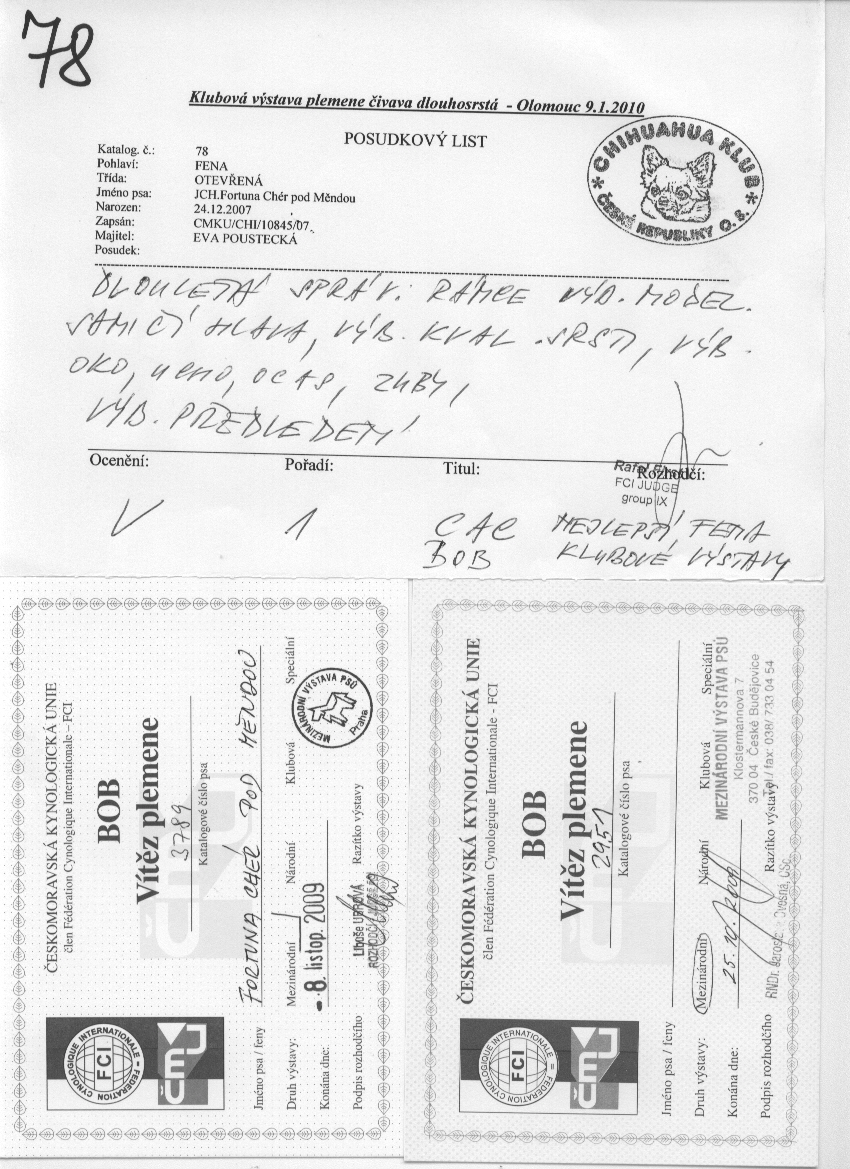 78
Klubová výstava plemene čivava dlouhosrstá - Olomouc 9.1.2010
POSUDKOVÝ LIST
CHIHUAHUA KLUB
ČESKÉ REPUBLIKY O. S.
Katalog. č.: 78
Pohlaví: FENA
Třída: OTEVŘENÁ
Jméno psa: JCH.Fortuna Chér pod Měndou
Narozen: 24.12.2007
Zapsán: CMKU/CHI/10845/07
Majitel: EVA POUSTECKÁ
Posudek:
DVOULETÁ SPRÁV. RÁMCE VÝB. MODEL.
SAMIČÍ HLAVA, VÝB. KVAL. SRSTI, VÝB.
OKO, UCHO, OCAS, ZUBY,
VÝB. PŘEDVEDENÍ
Ocenění: Pořadí: Titul: Rozhodčí:
FCI JUDGE
group IX
V 1 CAC NEJLEPŠÍ FENA
BOB KLUBOVÉ VÝSTAVY
ČESKOMORAVSKÁ KYNOLOGICKÁ UNIE
člen Fédération Cynologique Internationale - FCI
BOB
Vítěz plemene
3789
Katalogové číslo psa
Jméno psa / feny FORTUNA CHÉR POD MĚNDOU
Druh výstavy: Mezinárodní Národní Klubová Speciální
Konána dne: - 8. listop. 2009
Podpis rozhodčího Razítko výstavy
Libuše UBROVÁ
MEZINÁRODNÍ VÝSTAVA PSŮ
Praha
FEDERATION CYNOLOGIQUE INTERNATIONALE
FCI
ČMKU
ČESKOMORAVSKÁ KYNOLOGICKÁ UNIE
člen Fédération Cynologique Internationale - FCI
BOB
Vítěz plemene
2951
Katalogové číslo psa
Jméno psa / feny
Druh výstavy: Mezinárodní Národní Klubová Speciální
Konána dne: 25. 10. 2009
Podpis rozhodčího Razítko výstavy
MEZINÁRODNÍ VÝSTAVA PSŮ
Klostermannova 7
370 04 České Budějovice
Tel./ fax: 038/ 733 04 54
FEDERATION CYNOLOGIQUE INTERNATIONALE
FCI
ČMKU